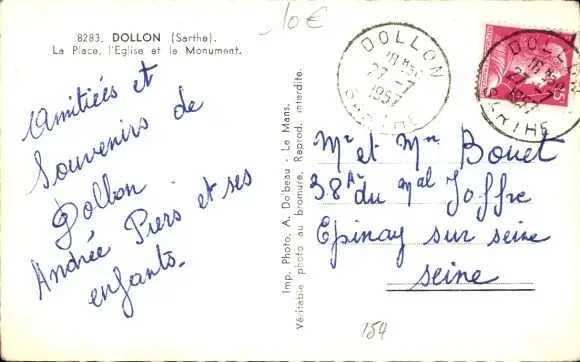 8283. DOLLON (Sarthe).
La Place, l'Eglise et le Monument.
10€
Amitiées et
Souvenirs de
Dollon
Andrée Piers et ses
enfants.
Imp. Photo. A. Dolbeau - Le Mans.
Véritable photo au bromure. Reprod. interdite.
DOLLON
27 -7
1957
SARTHE
DOLLON
27 -7
1957
SARTHE
Mr et Mm Bouet
38 Av du Mal Joffre
Epinay sur seine
seine
154